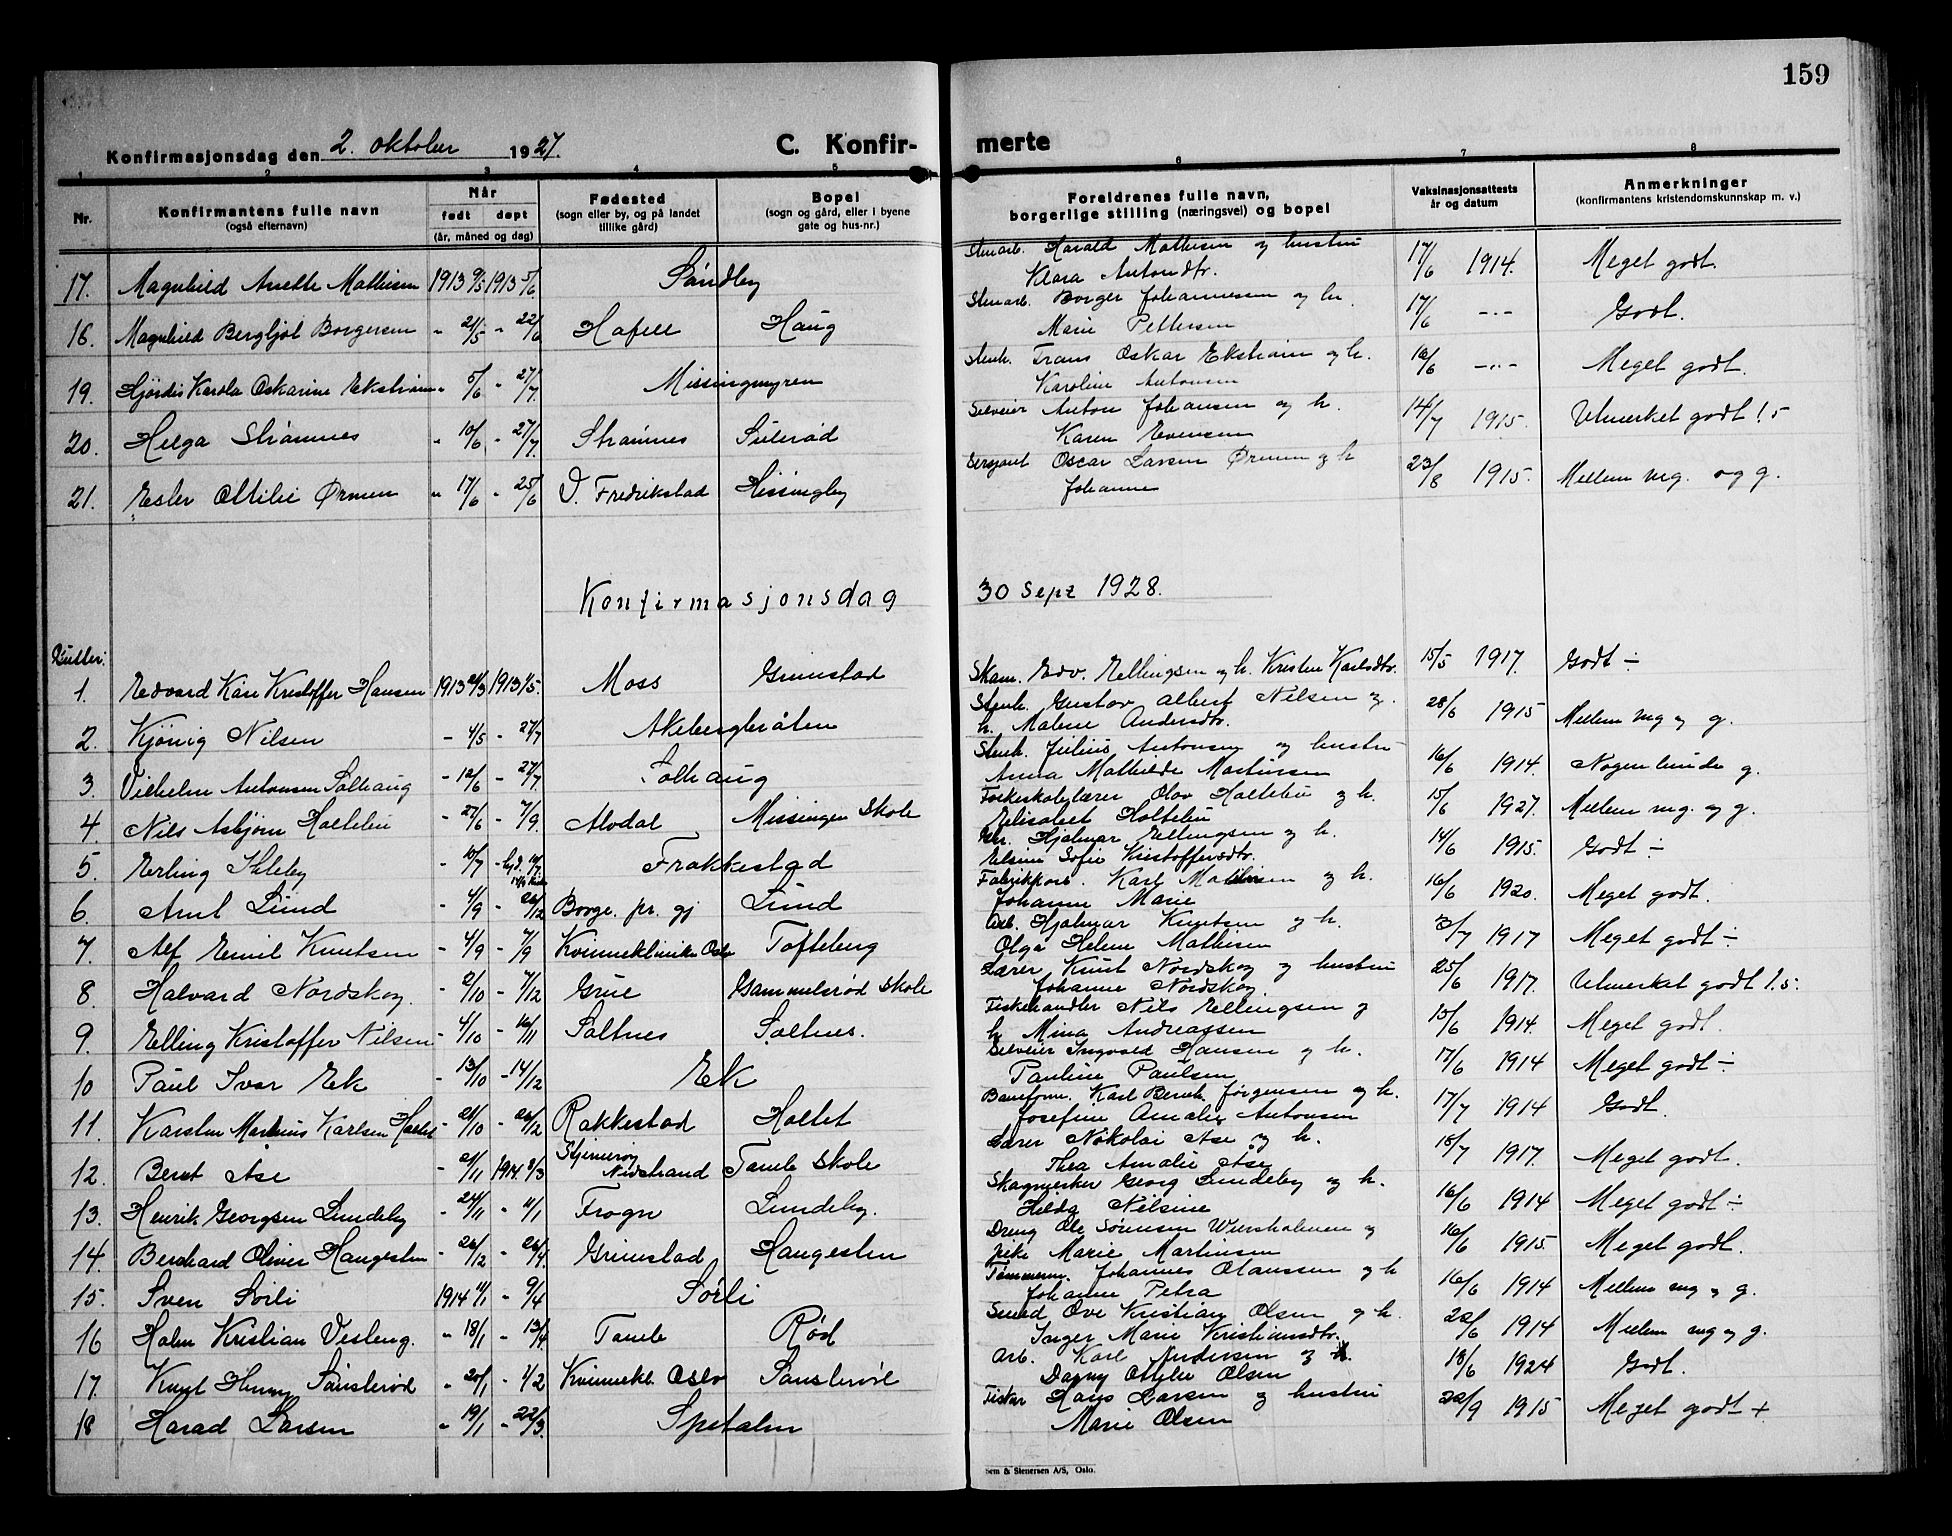 159
Konfirmasjonsdag den 2. oktober 1927. C. Konfir- merte
1 2 3 4 5 6 7 8
Nr. Konfirmantens fulle navn (også efternavn) Når født døpt (år, måned og dag) Fødested (sogn eller by, og på landet tillike gård) Bopel (sogn og gård, eller i byene gate og hus-nr.) Foreldrenes fulle navn, borgerlige stilling (næringsvei) og bopel Vaksinasjonsattests år og datum Anmerkninger (konfirmantens kristendomskunnskap m. v.)
17. Magnhild Anette Mathisen 1913 9/5 1913 5/6 Sandby Stenarb. Harald Mathisen og hustru Klara Antondtr. 17/6 1914. Meget godt.
16. Magnhild Bergljot Borgersen " 21/5 " 22/6 Hafell Haug Stenarb. Borger Johannessen og h. Marie Pettersen 17/6 —"— Godt.
19. Hjørdis Karola Oskarine Ekstrøm " 5/6 " 27/7. Missingmyren Stenh. Frans Oskar Ekstrøm og h. Karoline Antonsen 16/6 —"— Meget godt.
20. Helga Strømnes " 10/6 " 27/7. Strømnes Sulerød Selveier Anton Johansen og h. Karen Evensen 14/7 1915. Utmerket godt 1.5
21. Ester Ottilie Ørmen " 17/6 " 25/6 V. Fredrikstad Missingby Sersjant Oscar Larsen Ørmen og h Johanne 23/8 1915. Mellem mg. og g.
Konfirmasjonsdag 30 Sept 1928.
Gutter:
1. Edvard Kåre Kristoffer Hansen 1913 21/3 1913 1/5. Moss Grimstad Skom. Edv. Ellingsen og h. Kristine Karlsdtr. 15/5 1917. Godt ÷
2. Kjønig Nilsen - 4/5 - 27/7 Akebergbråten Stenh. Gustav Albert Nilsen og h. Malene Andersdtr. 28/6 1915 Mellem mg og g.
3. Vilhelm Antonsen Solhaug - 12/6 - 27/7. Solhaug Stenh. Julius Antonsen og hustru Anna Mathilde Martinsen 16/6 1914. Nogenlunde g.
4. Nils Asbjørn Holtelie - 27/6 - 7/9. Alvdal Missingen Skole Folkeskolelærer Olov Holtelie og h. Elisabeth Holtelie 15/6 1927. Mellem mg. og g.
5. Erling Ihleby - 10/7 - Frokkestad Hjalmar Ellingsen og h. Elsine Sofie Kristoffersdtr. 14/6 1915. Godt ÷
6. Arnt Lund - 4/9 - 26/12 Borge. pr. gj Lund Fabrikkarb. Karl Mathisen og h. Johanne Marie 16/6 1920. Meget godt.
7. Alf Emil Knutsen - 4/9 - 7/9 Kvinneklinikk Oslo Tofteberg Arb. Hjalmar Knutsen og h. Olga Helene Mathisen 3/7 1917 Meget godt ÷
8. Halvard Nordskog. - 2/10 - 7/12 Grue Gammelsrød Skole Lærer Knut Nordskog og hustru Johanne Nordskog. 25/6 1917. Utmerket godt 1.5.
9. Elling Kristoffer Nilsen - 4/10 - 16/11 Saltnes Saltnes. Fiskehandler Nils Ellingsen og h. Mina Andreassen 15/6 1914. Meget godt.
10 Paul Ivar Ek - 13/10 - 14/12 Ek Selveier Ingvald Hansen og h. Pauline Paulsen 17/6 1914 Meget godt ÷
11. Karsten Markus Karlsen Holtet - 21/10 - 26/12 Rakkestad Holtet Baneform. Karl Bernh. Jørgensen og h. Josefine Amalie Antonsen 17/7 1914 Godt.
12. Bernt Ase - 21/11 1914. 8/3 Stjernerøy Nedstrand Tomb Skole Lærer Nikolai Ase og h. Thea Amalie Ase 15/7 1917. Meget godt.
13. Henrik Georgsen Lundeby - 24/11 - 11/1 Frogn Lundeby. Georg Lundeby og h. Hilda Nilsine 16/6 1914 Meget godt ÷
14. Bernhard Oliver Haugesten - 26/12 - 26/4. Grimstad Haugesten Dreng Ole Sørensen og pike Marie Martinsen 16/6 1915. Meget godt.
15. Sven Sørli 1914 11/1 - 9/4 Sørli Tømmerm. Johannes Olaussen og h Johanne Petra 16/6 1914 Mellem mg og g.
16 Holm Kristian Vesteng. " 18/1 - 13/4. Tomb Rød Smed Ove Kristian Olsen og h. Inger Marie Kristiansdtr. 22/6 1914 Mellem mg og g.
17. Knut Henry Sånsterød " 20/1 - 1/2 Kvinnekl. Oslo Sånsterød Arb. Karl Andersen og h. Dagny Ottilie Olsen 18/6 1924 Godt.
18 Harad Larsen " 19/1 " 22/3. Spetalen Fisker Hans Larsen og hustru Marie Olsen 22/9 1915 Meget godt +
Sem & Stenersen A/S, Oslo.